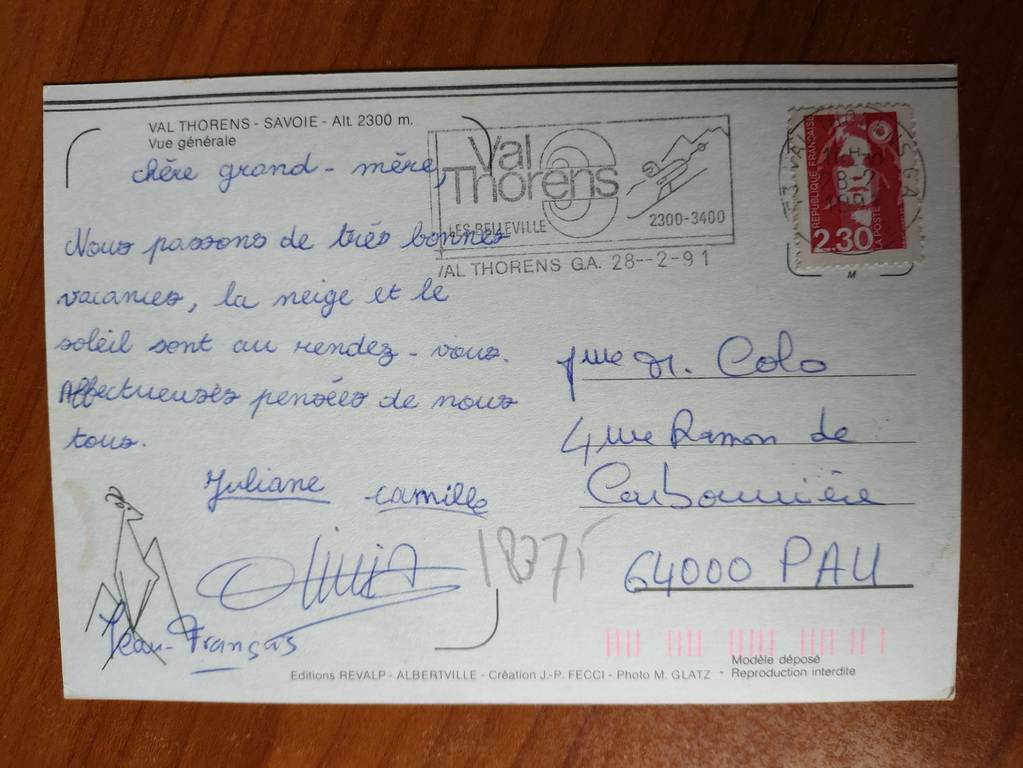 VAL THORENS - SAVOIE - Alt. 2300 m.
Vue générale
chère grand-mère,
Nous passons de très bonnes
vacances, la neige et le
soleil sont au rendez-vous.
Affectueuses pensées de nous
tous.
Juliane camille
Olivia
Jean-François
18375
Val
Thorens
LES BELLEVILLE
2300-3400
VAL THORENS GA. 28--2-91
REPUBLIQUE FRANÇAISE
2.30
LA POSTE
M
Mme M. Colo
4 rue Ramon de
Carbonnière
64000 PAU
Modèle déposé
Editions REVALP - ALBERTVILLE - Création J.-P. FECCI - Photo M. GLATZ - Reproduction interdite